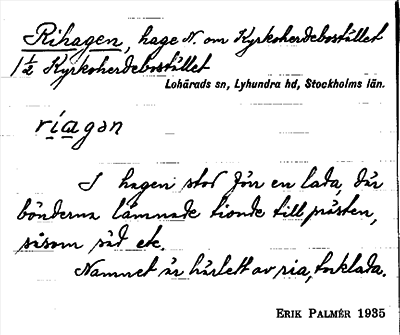 Rihagen, hage N. om Kyrkoherdebostället
1½ Kyrkoherdebostället
Lohärads sn, Lyhundra hd, Stockholms län.
ríagən
I hagen stod förr en lada, där
bönderna lämnade tionde till prästen,
såsom säd etc.
Namnet är härlett av ria, torklada.
ERIK PALMÉR 1935